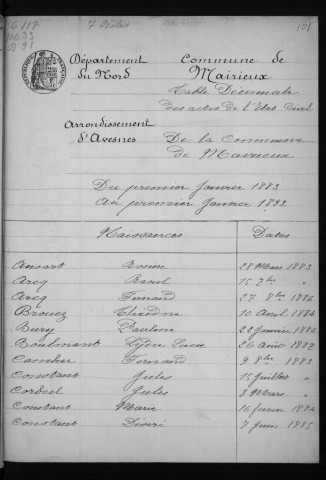 7 Bobs
101
Département du Nord
Commune de Mairieux
Table Décennale
des actes de l'Etat Civil
Arrondissement d'Avesnes
De la Commune de Mairieux
Du premier Janvier 1883
Au premier Janvier 1893
Naissances Dates
Ansart Rosine 28 Mars 1883
Arcq Raoul 15 7bre "
Arcq Fernand 27 8bre 1886
Brouez Théodore 10 Avril 1884
Bury Paulin 22 Janvier 1886
Boulmant Lydie Lucie 26 Août 1887
Cambier Fernand 9 8bre 1883
Constant Jules 15 Juillet "
Cordeil Jules 3 Mars "
Constant Marie 16 février 1884
Constant Désiré 7 Juin 1885